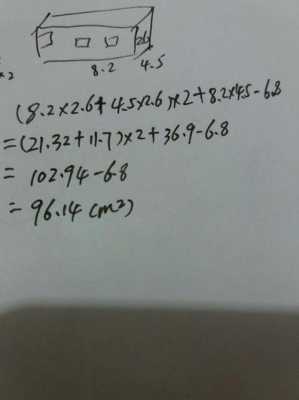 2.6
×2
8.2
4.5
(8.2×2.6+4.5×2.6)×2+8.2×4.5-6.8
=(21.32+11.7)×2+36.9-6.8
= 102.94-6.8
= 96.14(m²)